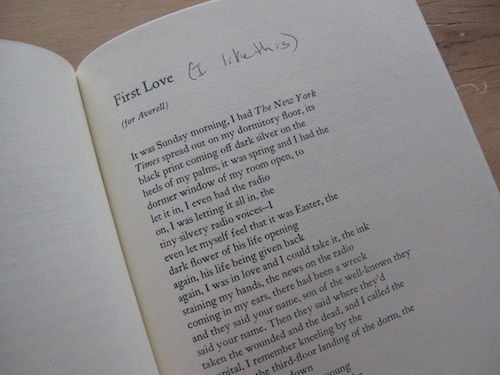 First Love (I like this)
(for Averell)
It was Sunday morning, I had The New York
Times spread out on my dormitory floor, its
black print coming off dark silver on the
heels of my palms, it was spring and I had the
dormer window of my room open, to
let it in, I even had the radio
on, I was letting it all in, the
tiny silvery radio voices—I
even let myself feel that it was Easter, the
dark flower of his life opening
again, his life being given back
again, I was in love and I could take it, the ink
staining my hands, the news on the radio
coming in my ears, there had been a wreck
and they said your name, son of the well-known they
said your name. Then they said where they'd
taken the wounded and the dead, and I called the
spital, I remember kneeling by the
the third-floor landing of the dorm, the
down
young